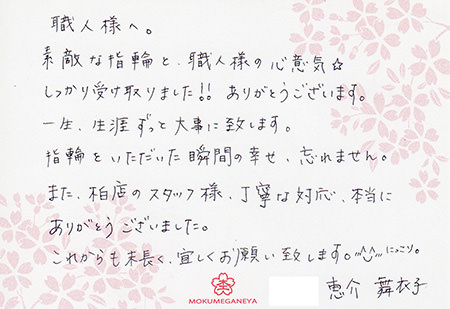 職人様へ。
素敵な指輪と、職人様の心意気☆
しっかり受け取りました!! ありがとうございます。
一生、生涯ずっと大事に致します。
指輪をいただいた瞬間の幸せ、忘れません。
また、柏店のスタッフ様、丁寧な対応、本当に
ありがとうございました。
これからも末長く、宜しくお願い致します。"^‿^" にっこり。
MOKUMEGANEYA
恵介 舞衣子